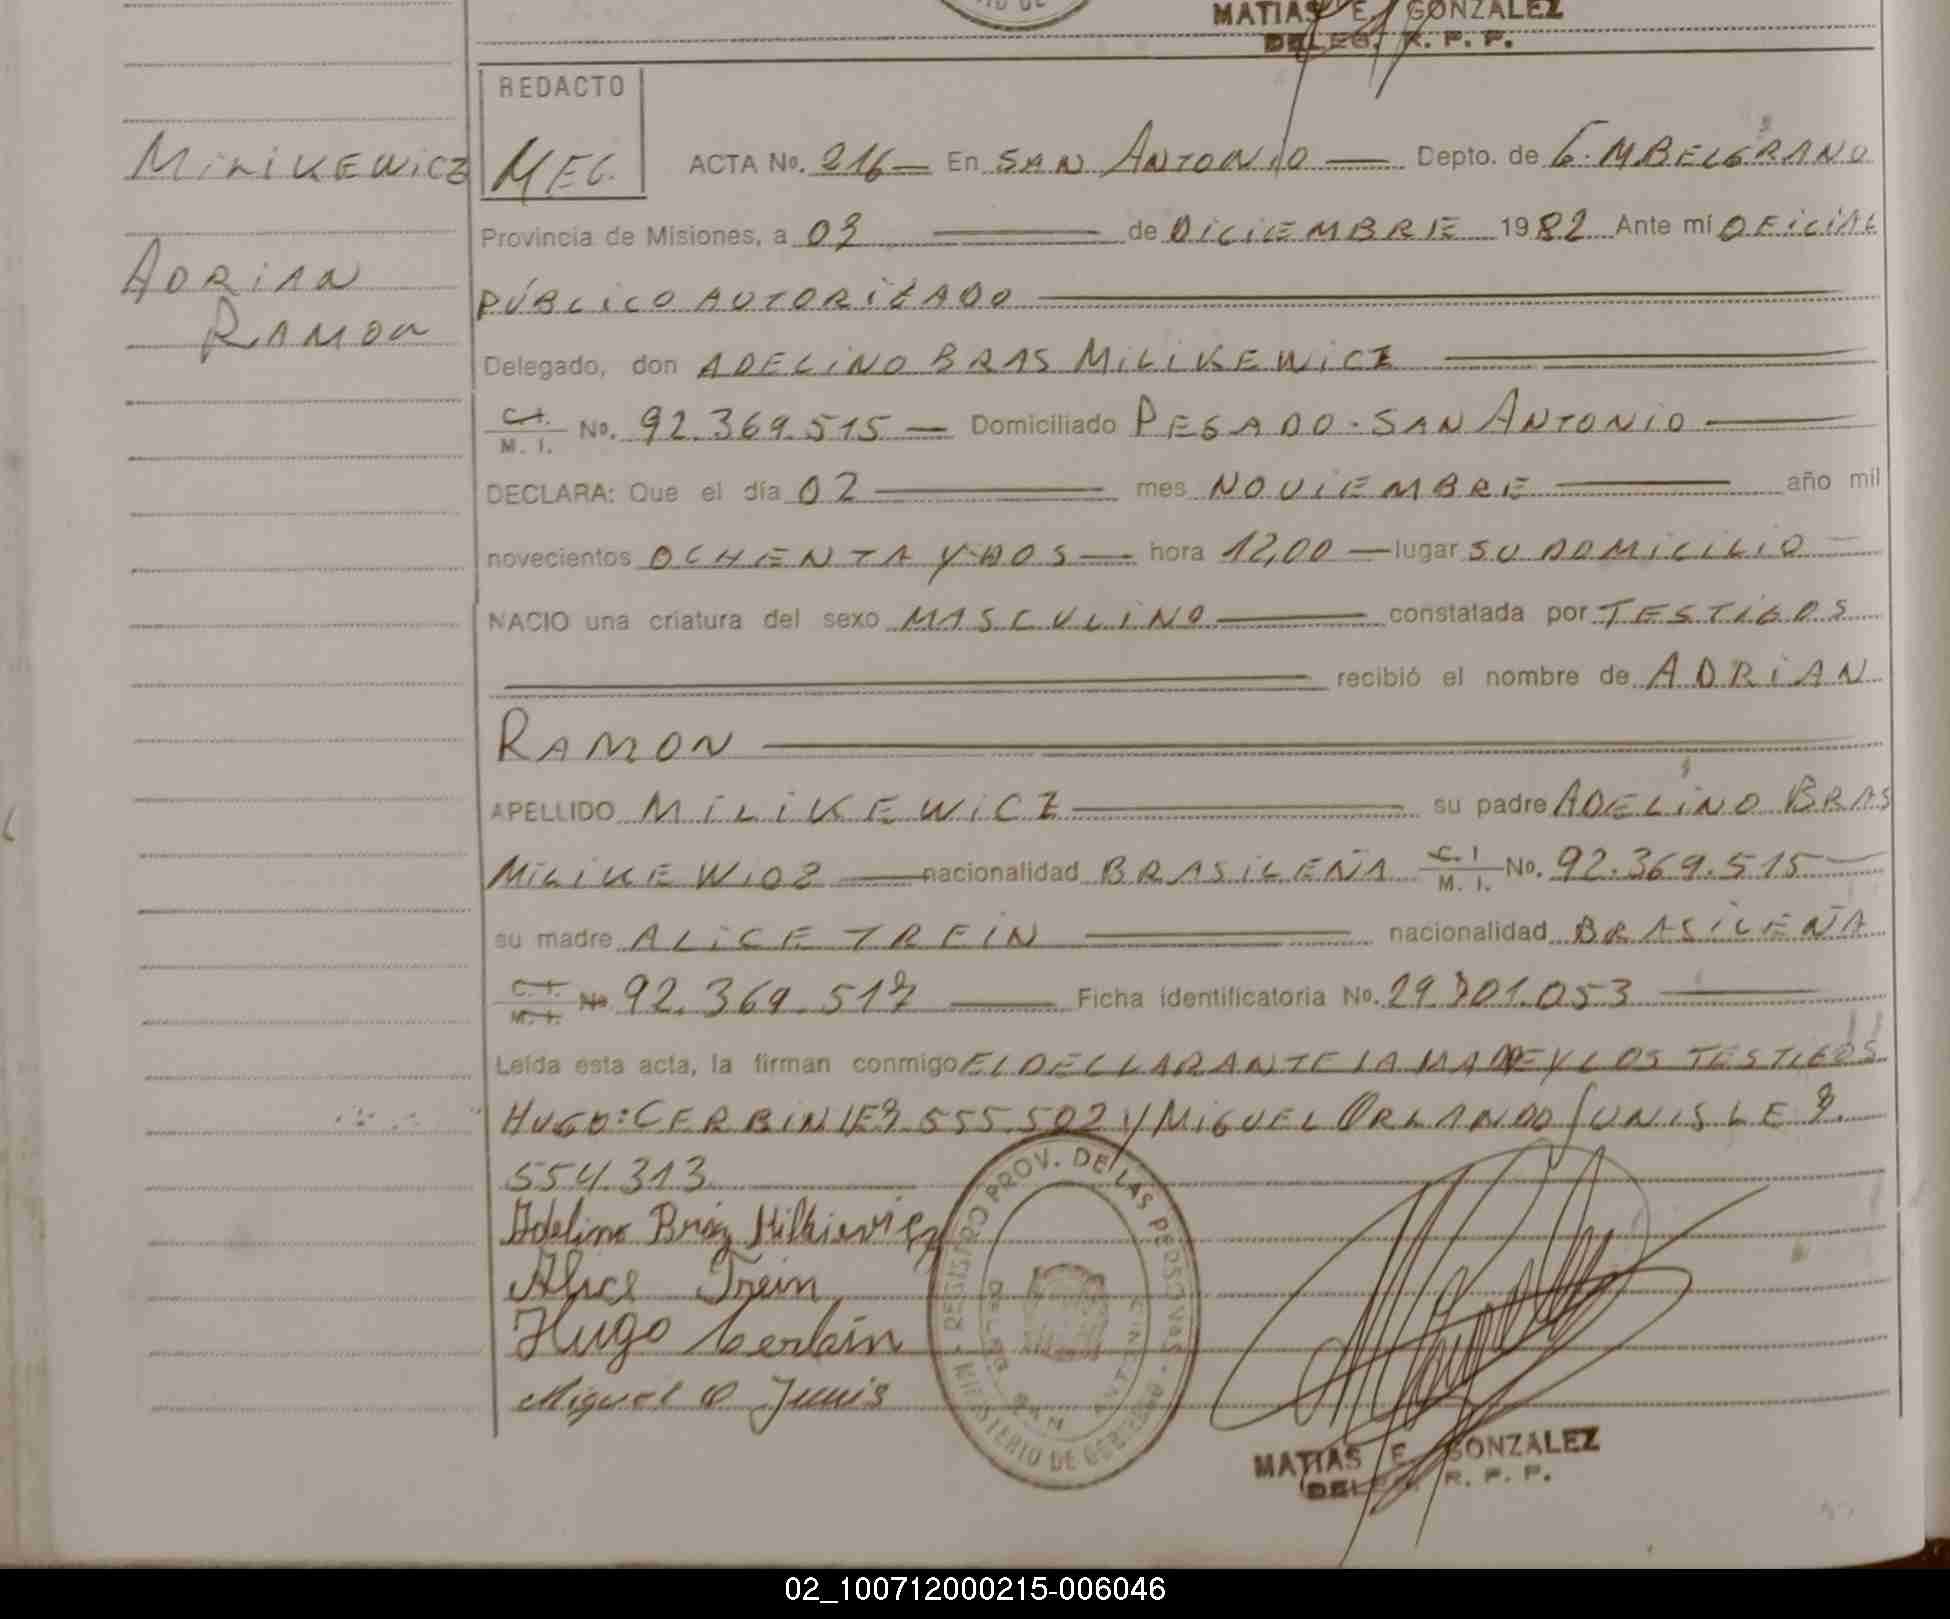 MATIAS E. GONZALEZ
DELEG. R. P. P.
REDACTO
MEG.
MILIKEWICZ
ADRIAN
RAMON
ACTA No. 216 — En SAN ANTONIO — Depto. de G. M BELGRANO
Provincia de Misiones, a 03 — de DICIEMBRE 1982 Ante mi OFICIAL
PÚBLICO AUTORIZADO
Delegado, don ADELINO BRAS MILIKEWICZ
C.I.
M. I. No. 92.369.515 — Domiciliado PESADO - SAN ANTONIO —
DECLARA: Que el día 02 — mes NOVIEMBRE — año mil
novecientos OCHENTA Y DOS — hora 12,00 — lugar SU DOMICILIO —
NACIO una criatura del sexo MASCULINO — constatada por TESTIGOS
recibió el nombre de ADRIAN
RAMON
APELLIDO MILIKEWICZ — su padre ADELINO BRAS
MILIKEWICZ — nacionalidad BRASILEÑA C. I
M. I. No. 92.369.515 —
su madre ALICE TREIN — nacionalidad BRASILEÑA
C. I.
M. I. No 92.369.517 — Ficha identificatoria No. 29.301.053 —
Leída esta acta, la firman conmigo EL DECLARANTE LA MADRE Y LOS TESTIGOS
HUGO: CERBIN LE 555.502 Y MIGUEL ORLANDO JUNIS LE 8.
554.313
Adelino Bráz Milkievicz
Alice Trein
Hugo Cerbin
Miguel O Junis
REGISTRO PROV. DE LAS PERSONAS
MINISTERIO DE GOBIERNO
DELEG. SAN ANTONIO
MATIAS E. GONZALEZ
DELEG. R. P. P.
02_100712000215-006046